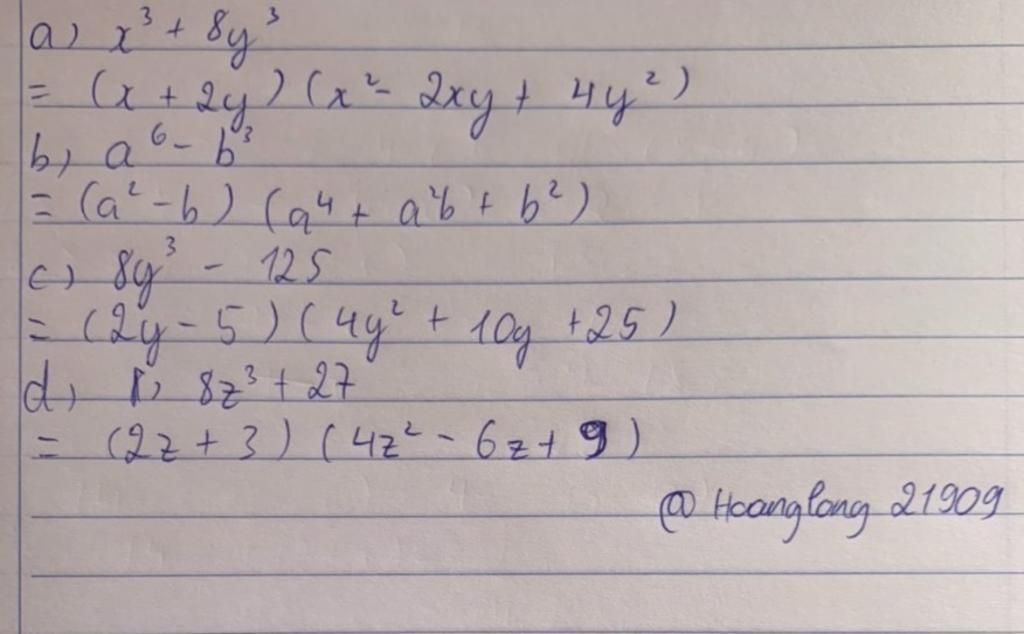 a) x³ + 8y³
= (x + 2y) (x² - 2xy + 4y²)
b) a⁶ - b³
= (a² - b) (a⁴ + a²b + b²)
c) 8y³ - 125
= (2y - 5) (4y² + 10y + 25)
d) 8z³ + 27
= (2z + 3) (4z² - 6z + 9)
@ Hoanglong 21909